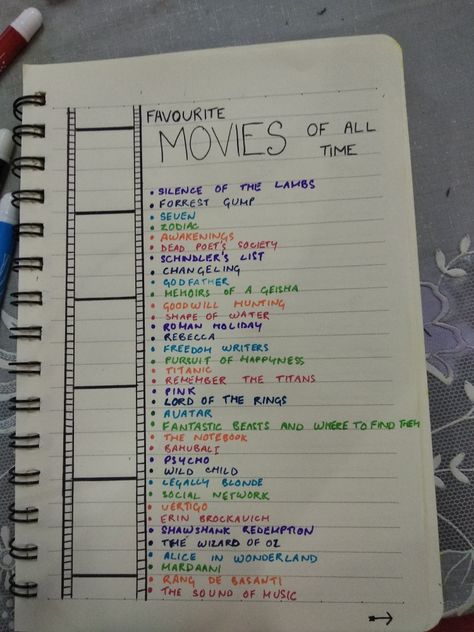 FAVOURITE
MOVIES OF ALL TIME
• SILENCE OF THE LAMBS
• FORREST GUMP
• SEVEN
• ZODIAC
• AWAKENINGS
• DEAD POET'S SOCIETY
• SCHNDLER'S LIST
• CHANGELING
• GODFATHER
• MEMOIRS OF A GEISHA
• GOODWILL HUNTING
• SHAPE OF WATER
• ROMAN HOLIDAY
• REBECCA
• FREEDOM WRITERS
• PURSUIT OF HAPPYNESS
• TITANIC
• REMEMBER THE TITANS
• PINK
• LORD OF THE RINGS
• AVATAR
• FANTASTIC BEASTS AND WHERE TO FIND THEM
• THE NOTEBOOK
• BAHUBALI
• PSYCHO
• WILD CHILD
• LEGALLY BLONDE
• SOCIAL NETWORK
• VERTIGO
• ERIN BROCKAVICH
• SHAWSHANK REDEMPTION
• THE WIZARD OF OZ
• ALICE IN WONDERLAND
• MARDAANI
• RANG DE BASANTI
• THE SOUND OF MUSIC